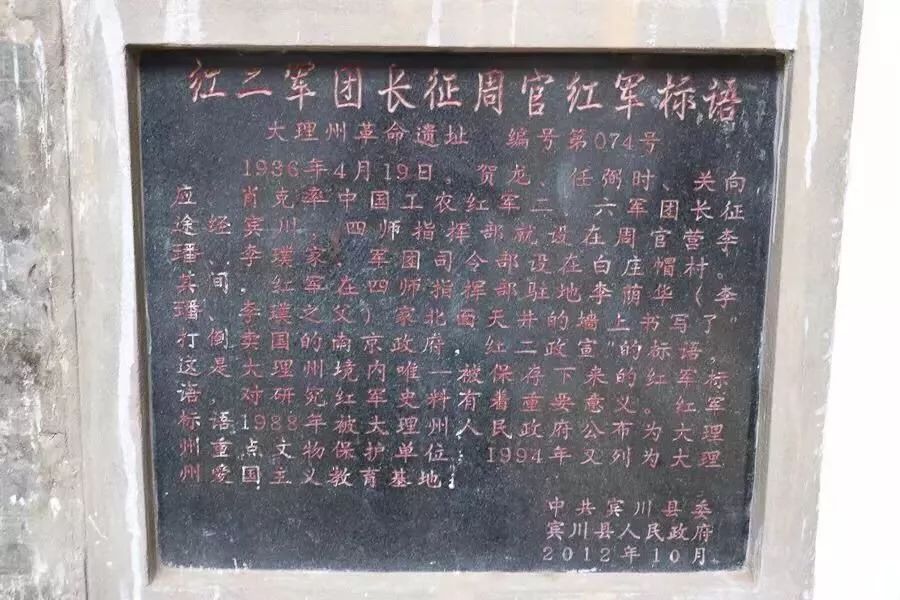 红二军团长征周官红军标语
大理州革命遗址 编号第074号
1936年4月19日,贺龙、任弼时、关向
应、肖克率中国工农红军二、六军团长征
途经宾川,四师指挥部就设在周官营李
璠、李璞家,军团司令部设在白庄帽村。
其间,红军在四师指挥部驻地李荫华(李
璠、李璞之父)家北面天井的墙上书写了"
打倒卖国的南京政府,红二政宣"的标语,
这是大理州境内唯一被保存下来的红军标
语,对研究红军史料有着重要意义。红军
标语1988年被大理州人民政府公布为大理
州重点文物保护单位,1994年又列为大理
州爱国主义教育基地。
中共宾川县委
宾川县人民政府
2012年10月